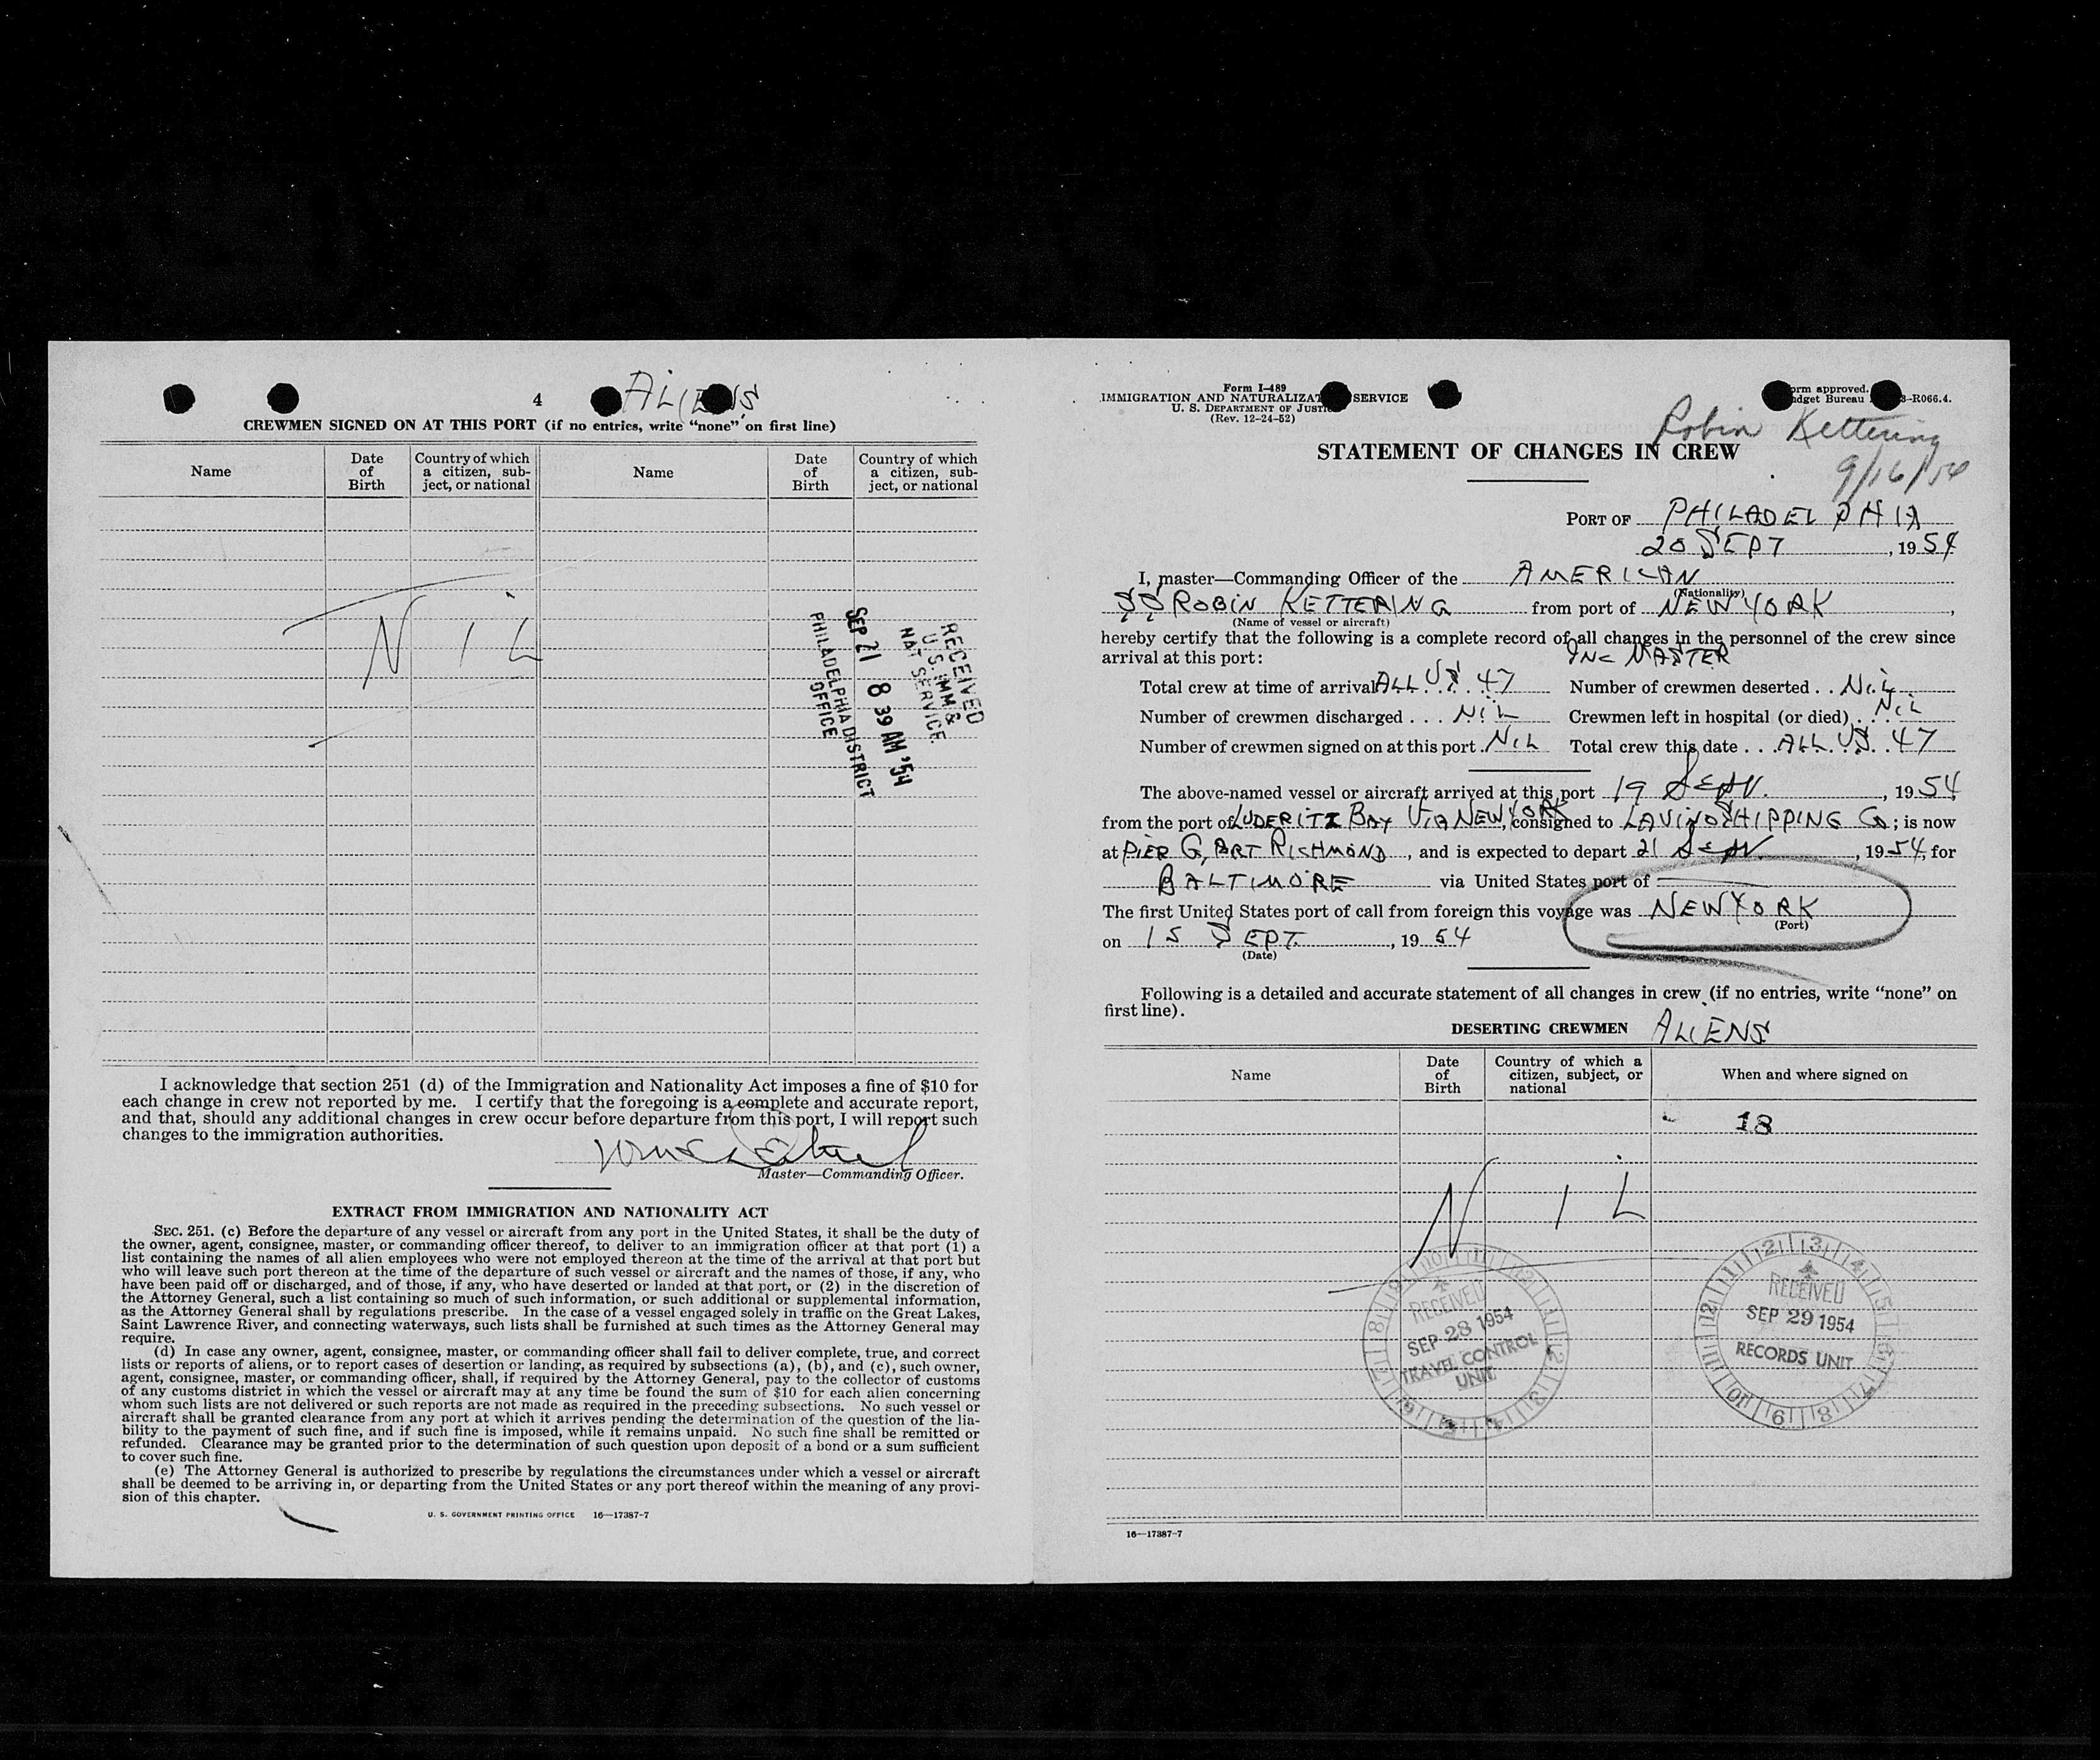 4
ALIENS
CREWMEN SIGNED ON AT THIS PORT (if no entries, write “none” on first line)
Name
Date of Birth
Country of which a citizen, subject, or national
Name
Date of Birth
Country of which a citizen, subject, or national
NIL
RECEIVED
U.S. IMM &
NAT SERVICE
SEP 21 8 39 AM '54
PHILADELPHIA DISTRICT
OFFICE
I acknowledge that section 251 (d) of the Immigration and Nationality Act imposes a fine of $10 for
each change in crew not reported by me. I certify that the foregoing is a complete and accurate report,
and that, should any additional changes in crew occur before departure from this port, I will report such
changes to the immigration authorities.
Master—Commanding Officer.
EXTRACT FROM IMMIGRATION AND NATIONALITY ACT
SEC. 251. (c) Before the departure of any vessel or aircraft from any port in the United States, it shall be the duty of
the owner, agent, consignee, master, or commanding officer thereof, to deliver to an immigration officer at that port (1) a
list containing the names of all alien employees who were not employed thereon at the time of the arrival at that port but
who will leave such port thereon at the time of the departure of such vessel or aircraft and the names of those, if any, who
have been paid off or discharged, and of those, if any, who have deserted or landed at that port, or (2) in the discretion of
the Attorney General, such a list containing so much of such information, or such additional or supplemental information,
as the Attorney General shall by regulations prescribe. In the case of a vessel engaged solely in traffic on the Great Lakes,
Saint Lawrence River, and connecting waterways, such lists shall be furnished at such times as the Attorney General may
require.
(d) In case any owner, agent, consignee, master, or commanding officer shall fail to deliver complete, true, and correct
lists or reports of aliens, or to report cases of desertion or landing, as required by subsections (a), (b), and (c), such owner,
agent, consignee, master, or commanding officer, shall, if required by the Attorney General, pay to the collector of customs
of any customs district in which the vessel or aircraft may at any time be found the sum of $10 for each alien concerning
whom such lists are not delivered or such reports are not made as required in the preceding subsections. No such vessel or
aircraft shall be granted clearance from any port at which it arrives pending the determination of the question of the lia-
bility to the payment of such fine, and if such fine is imposed, while it remains unpaid. No such fine shall be remitted or
refunded. Clearance may be granted prior to the determination of such question upon deposit of a bond or a sum sufficient
to cover such fine.
(e) The Attorney General is authorized to prescribe by regulations the circumstances under which a vessel or aircraft
shall be deemed to be arriving in, or departing from the United States or any port thereof within the meaning of any provi-
sion of this chapter.
U. S. GOVERNMENT PRINTING OFFICE 16—17387-7
Form I-489
IMMIGRATION AND NATURALIZAT SERVICE
U. S. DEPARTMENT OF JUSTI
(Rev. 12-24-52)
orm approved.
dget Bureau -R066.4.
Robin Kettering
9/16/54
STATEMENT OF CHANGES IN CREW
PORT OF PHILADELPHIA
20 SEPT, 1954
I, master—Commanding Officer of the AMERICAN
(Nationality)
SS ROBIN KETTERING from port of NEW YORK,
(Name of vessel or aircraft)
hereby certify that the following is a complete record of all changes in the personnel of the crew since
arrival at this port:
INC MASTER
Total crew at time of arrival ALL US. 47 Number of crewmen deserted . . NiL
Number of crewmen discharged . . . NiL Crewmen left in hospital (or died) . NiL
Number of crewmen signed on at this port . NiL Total crew this date . . . ALL. US. 47
The above-named vessel or aircraft arrived at this port 19 Sept., 1954
from the port of LUDERITZ BAY VIA NEW YORK, consigned to LAVINO SHIPPING Co; is now
at PIER G, PORT RICHMOND, and is expected to depart 21 Sept, 1954, for
BALTIMORE via United States port of
The first United States port of call from foreign this voyage was NEW YORK
(Port)
on 15 SEPT., 1954
(Date)
Following is a detailed and accurate statement of all changes in crew (if no entries, write “none” on
first line).
DESERTING CREWMEN ALIENS
Name
Date of Birth
Country of which a citizen, subject, or national
When and where signed on
18
NIL
RECEIVED
SEP 28 1954
TRAVEL CONTROL
UNIT
RECEIVED
SEP 29 1954
RECORDS UNIT
16—17387-7